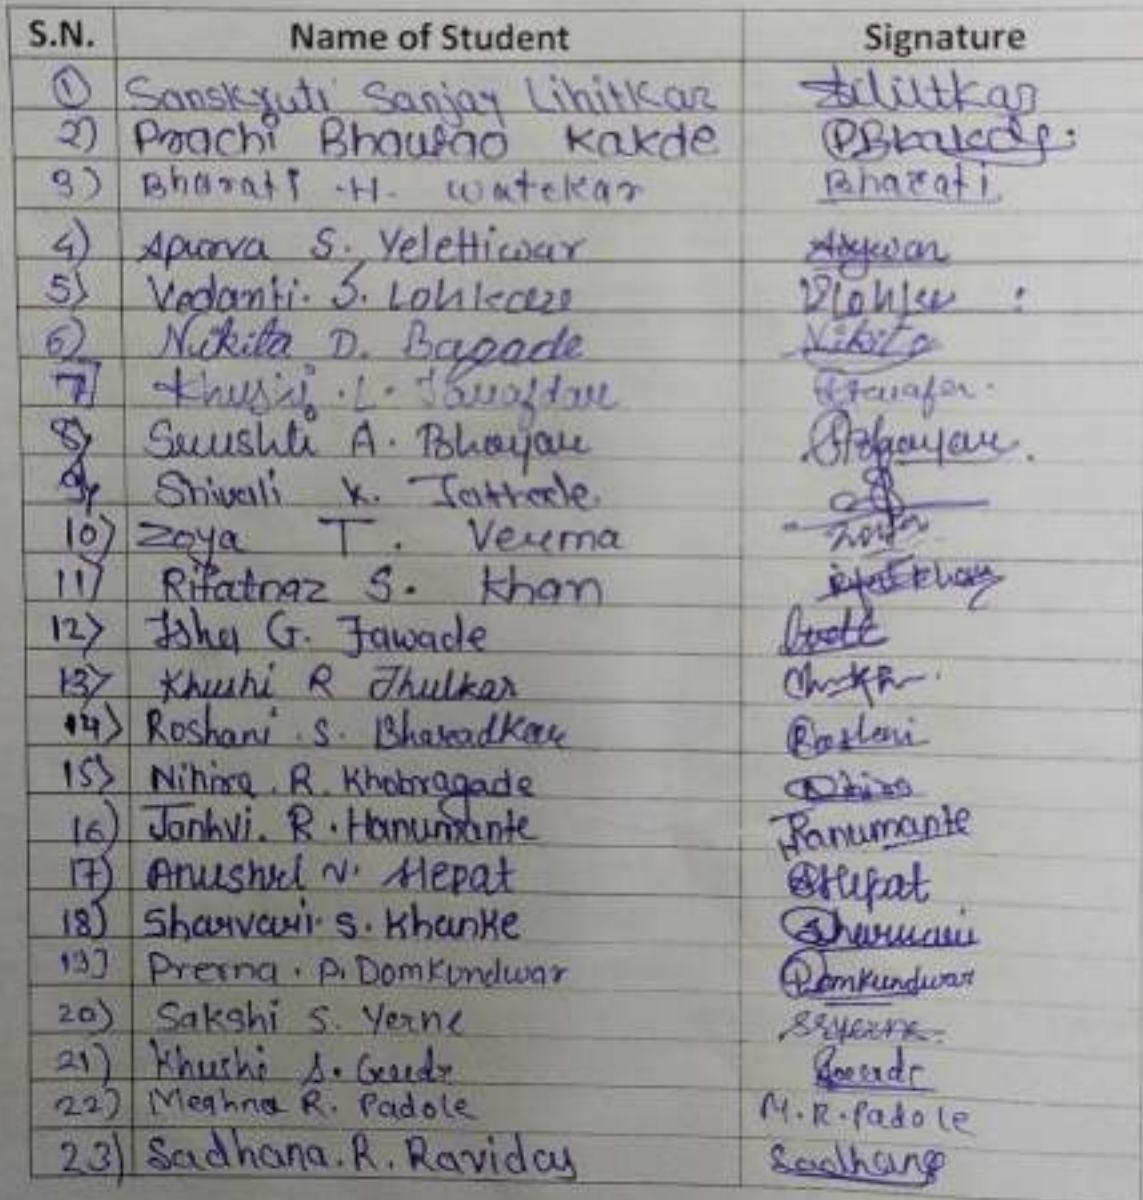 S.N. Name of Student Signature
1) Sanskruti Sanjay Lihitkar
2) Prachi Bhaurao Kakde PBkakde.
3) Bharati .H. Watekar Bharati
4) Apurva S. Yelettiwar
5) Vedanti. S. Lohkare
6) Nikita D. Bagade Nikita
7) Khushi .L.
8) Srushti A. Bhoyar Bhoyar.
9) Shivali K.
10) Zoya T. Verma Zoya
11) Rifatnaz S. Khan Rifat Khan
12) Isha G. Jawade
13) Khushi R Jhulkar
14) Roshani .S. Bharadkar Roshani
15) Nihira. R. Khobragade Nihira
16) Janhvi. R. Hanumante Hanumante
17) Anushri N. Hepat AHepat
18) Sharvari. S. Khanke Sharvari
19) Prerna . P. Domkundwar Domkundwar
20) Sakshi S. Yerne SSYerne.
21) Khushi S.
22) Meghna R. Padole M.R.Padole
23) Sadhana. R. Ravidas Sadhana